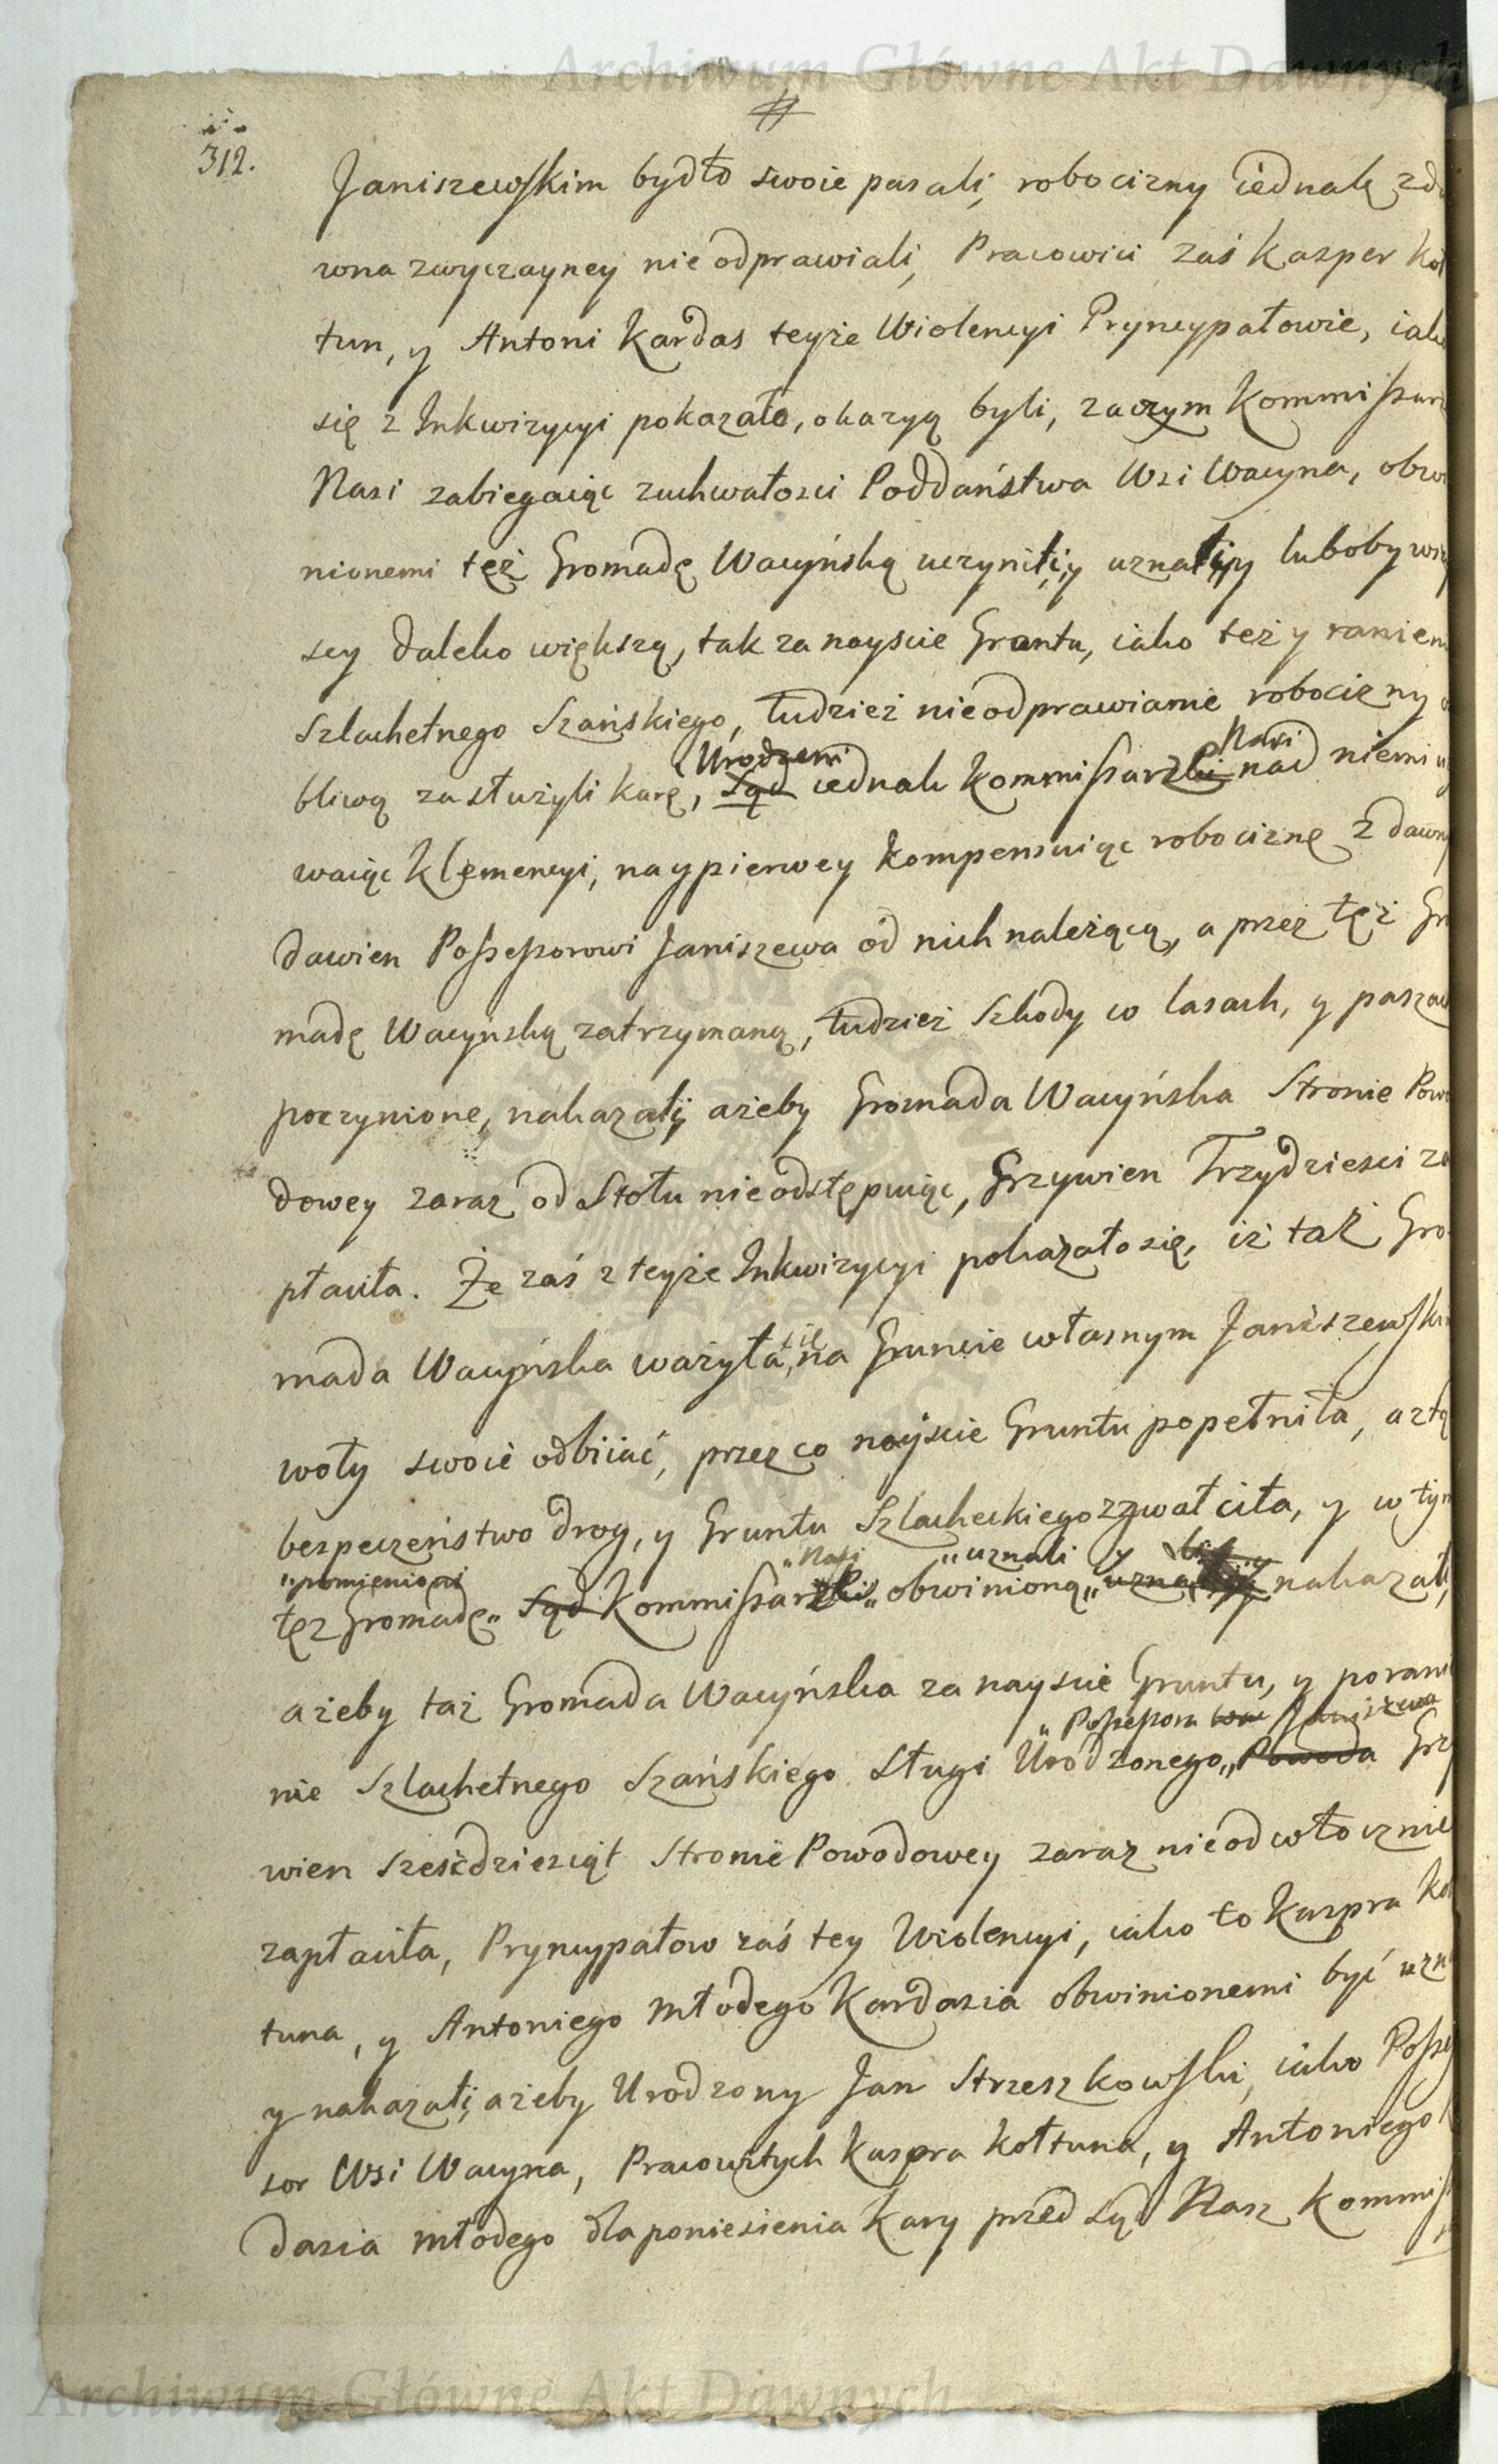 Archiwum Główne Akt Dawnych
#
312.
Janiszewskim bydło swoie pasali, robocizny iednak zda
wna zwyczayney nie odprawiali, Pracowici zaś Kasper Koł
tun, y Antoni Kardas teyże Wiolencyi Pryncypałowie, iako
się z Inkwizycyi pokazało, okazyą byli, zaczym Kommissarze
Nasi zabiegaiąc zuchwałości Poddaństwa Wsi Wacyna, obwi
nionemi też Gromadę Wacyńską uczynili, y uznali, y luboby wszy
scy daleko większą, tak za nayscie Gruntu, iako też y ranienie
Szlachetnego Szańskiego, tudzież nieodprawianie robocizny
Urodzeni Nasi
bliwą zasłużyli karę, Sąd iednak Kommissarzki nad niemi u
waiąc Klemencyi, naypierwey kompensuiąc robociznę z dawn
dawien Possessorowi Janiszewa od nich należącą, a przez tęż Gro
madę Wacyńską zatrzymaną, tudzież Szkody w lasach, y paszach
poczynione, nakazali, ażeby Gromada Wacyńska Stronie Powo
dowey zaraz od Stołu nieodstępuiąc, Grzywien Trzydziesci za
płaciła. Że zaś z teyże Inkwizycyi pokazało się, iż taż Gro
się
mada Wacyńska ważyła na Gruncie własnym Janiszewskim
woły swoie odbiiać, przez co nayscie Gruntu popełniła, a ztą
bespeczeństwo drog, y Gruntu Szlacheckiego zgwałciła, y w tym
pomienioni Nasi uznali y
tęż Gromadę Sąd Kommissarzki obwinioną nakazali,
ażeby taż Gromada Wacyńska za nayscie Gruntu, y porani
Possessora Janiszewa
nie Szlachetnego Szańskiego Sługi Urodzonego Powoda Grzy
wien Sześćdziesiąt Stronie Powodowey zaraz nieodwłocznie
zapłaciła, Pryncypałow zaś tey Wiolencyi, iako to Kaspra Koł
tuna, y Antoniego młodego Kardasia obwinionemi być uzna
y nakazali, ażeby Urodzony Jan Strzeszkowski, iako Posses
sor Wsi Wacyna, Pracowitych Kaspra Kołtuna, y Antoniego
dasia młodego dla poniesienia Kary przed Sąd Nasz Kommis
Archiwum Główne Akt Dawnych